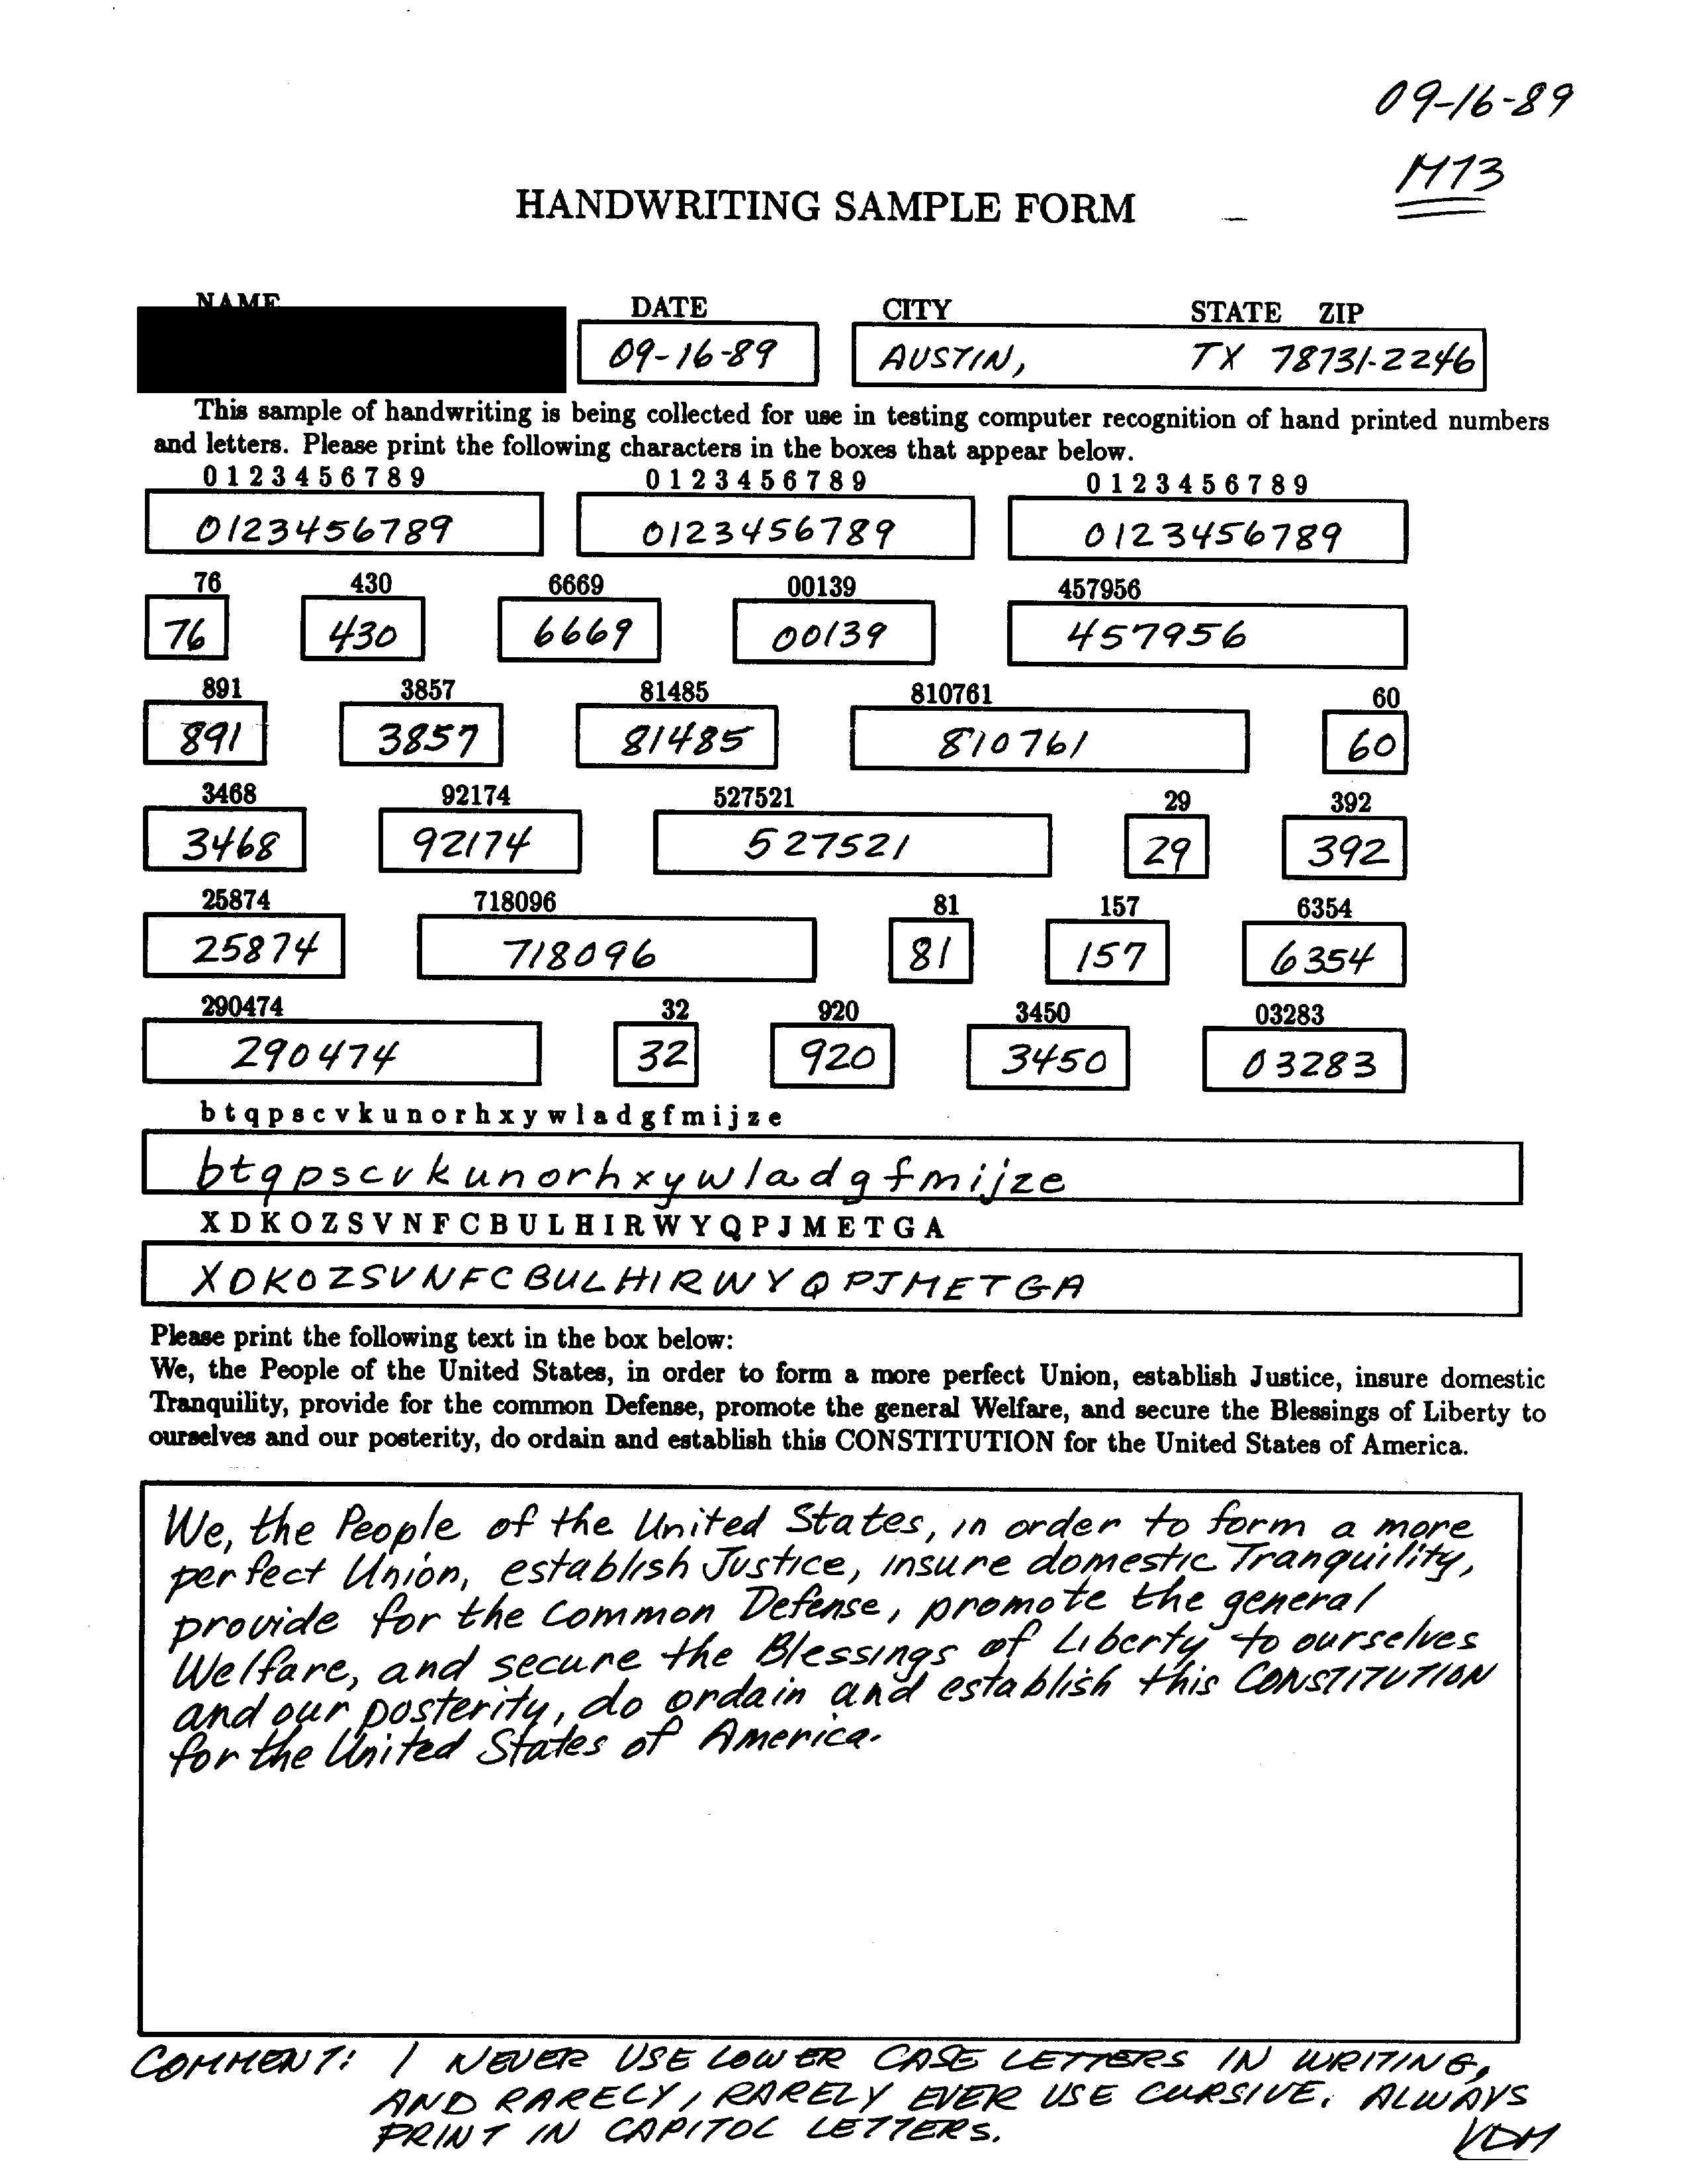 09-16-89
M13
HANDWRITING SAMPLE FORM
NAME DATE CITY STATE ZIP
09-16-89 AUSTIN, TX 78731-2246
This sample of handwriting is being collected for use in testing computer recognition of hand printed numbers
and letters. Please print the following characters in the boxes that appear below.
0 1 2 3 4 5 6 7 8 9 0 1 2 3 4 5 6 7 8 9 0 1 2 3 4 5 6 7 8 9
0123456789 0123456789 0123456789
76 430 6669 00139 457956
76 430 6669 00139 457956
891 3857 81485 810761 60
891 3857 81485 810761 60
3468 92174 527521 29 392
3468 92174 527521 29 392
25874 718096 81 157 6354
25874 718096 81 157 6354
290474 32 920 3450 03283
290474 32 920 3450 03283
b t q p s c v k u n o r h x y w l a d g f m i j z e
b t q p s c v k u n o r h x y w l a d g f m i j z e
X D K O Z S V N F C B U L H I R W Y Q P J M E T G A
X D K O Z S V N F C B U L H I R W Y Q P J M E T G A
Please print the following text in the box below:
We, the People of the United States, in order to form a more perfect Union, establish Justice, insure domestic
Tranquility, provide for the common Defense, promote the general Welfare, and secure the Blessings of Liberty to
ourselves and our posterity, do ordain and establish this CONSTITUTION for the United States of America.
We, the People of the United States, in order to form a more
perfect Union, establish Justice, insure domestic Tranquility,
provide for the Common Defense, promote the general
Welfare, and secure the Blessings of Liberty to ourselves
and our posterity, do ordain and establish this CONSTITUTION
for the United States of America.
COMMENT: I NEVER USE LOWER CASE LETTERS IN WRITING,
AND RARELY, RARELY EVER USE CURSIVE. ALWAYS
PRINT IN CAPITOL LETTERS.
VDM